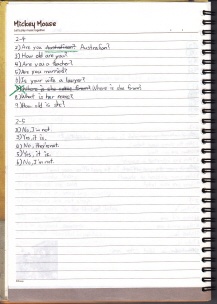 Mickey Mouse
2-4
2) Are you Australian? Australian?
3) How old are you?
4) Are you a teacher?
5) Are you married?
6) Is your wife a lawyer?
7) Where is she from?
8) What is her name?
9) How old is she?
2-5
2) No, I'm not.
3) Yes, it is.
4) No, they're not.
5) Yes, it is.
6) No, I'm not.